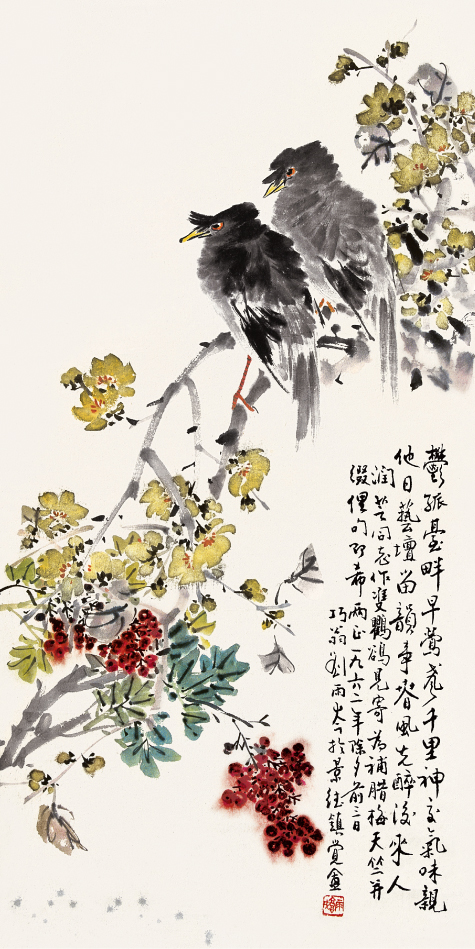 鬱孤臺畔早鶯飛千里神交氣味親
他日藝壇留韻事春風先醉後來人
潤芝同志作雙鸜鵒見寄為補腊梅天竺并
綴俚句即希兩正一九六二年除夕前二日
巧翁劉雨岑於景德鎮覺盦